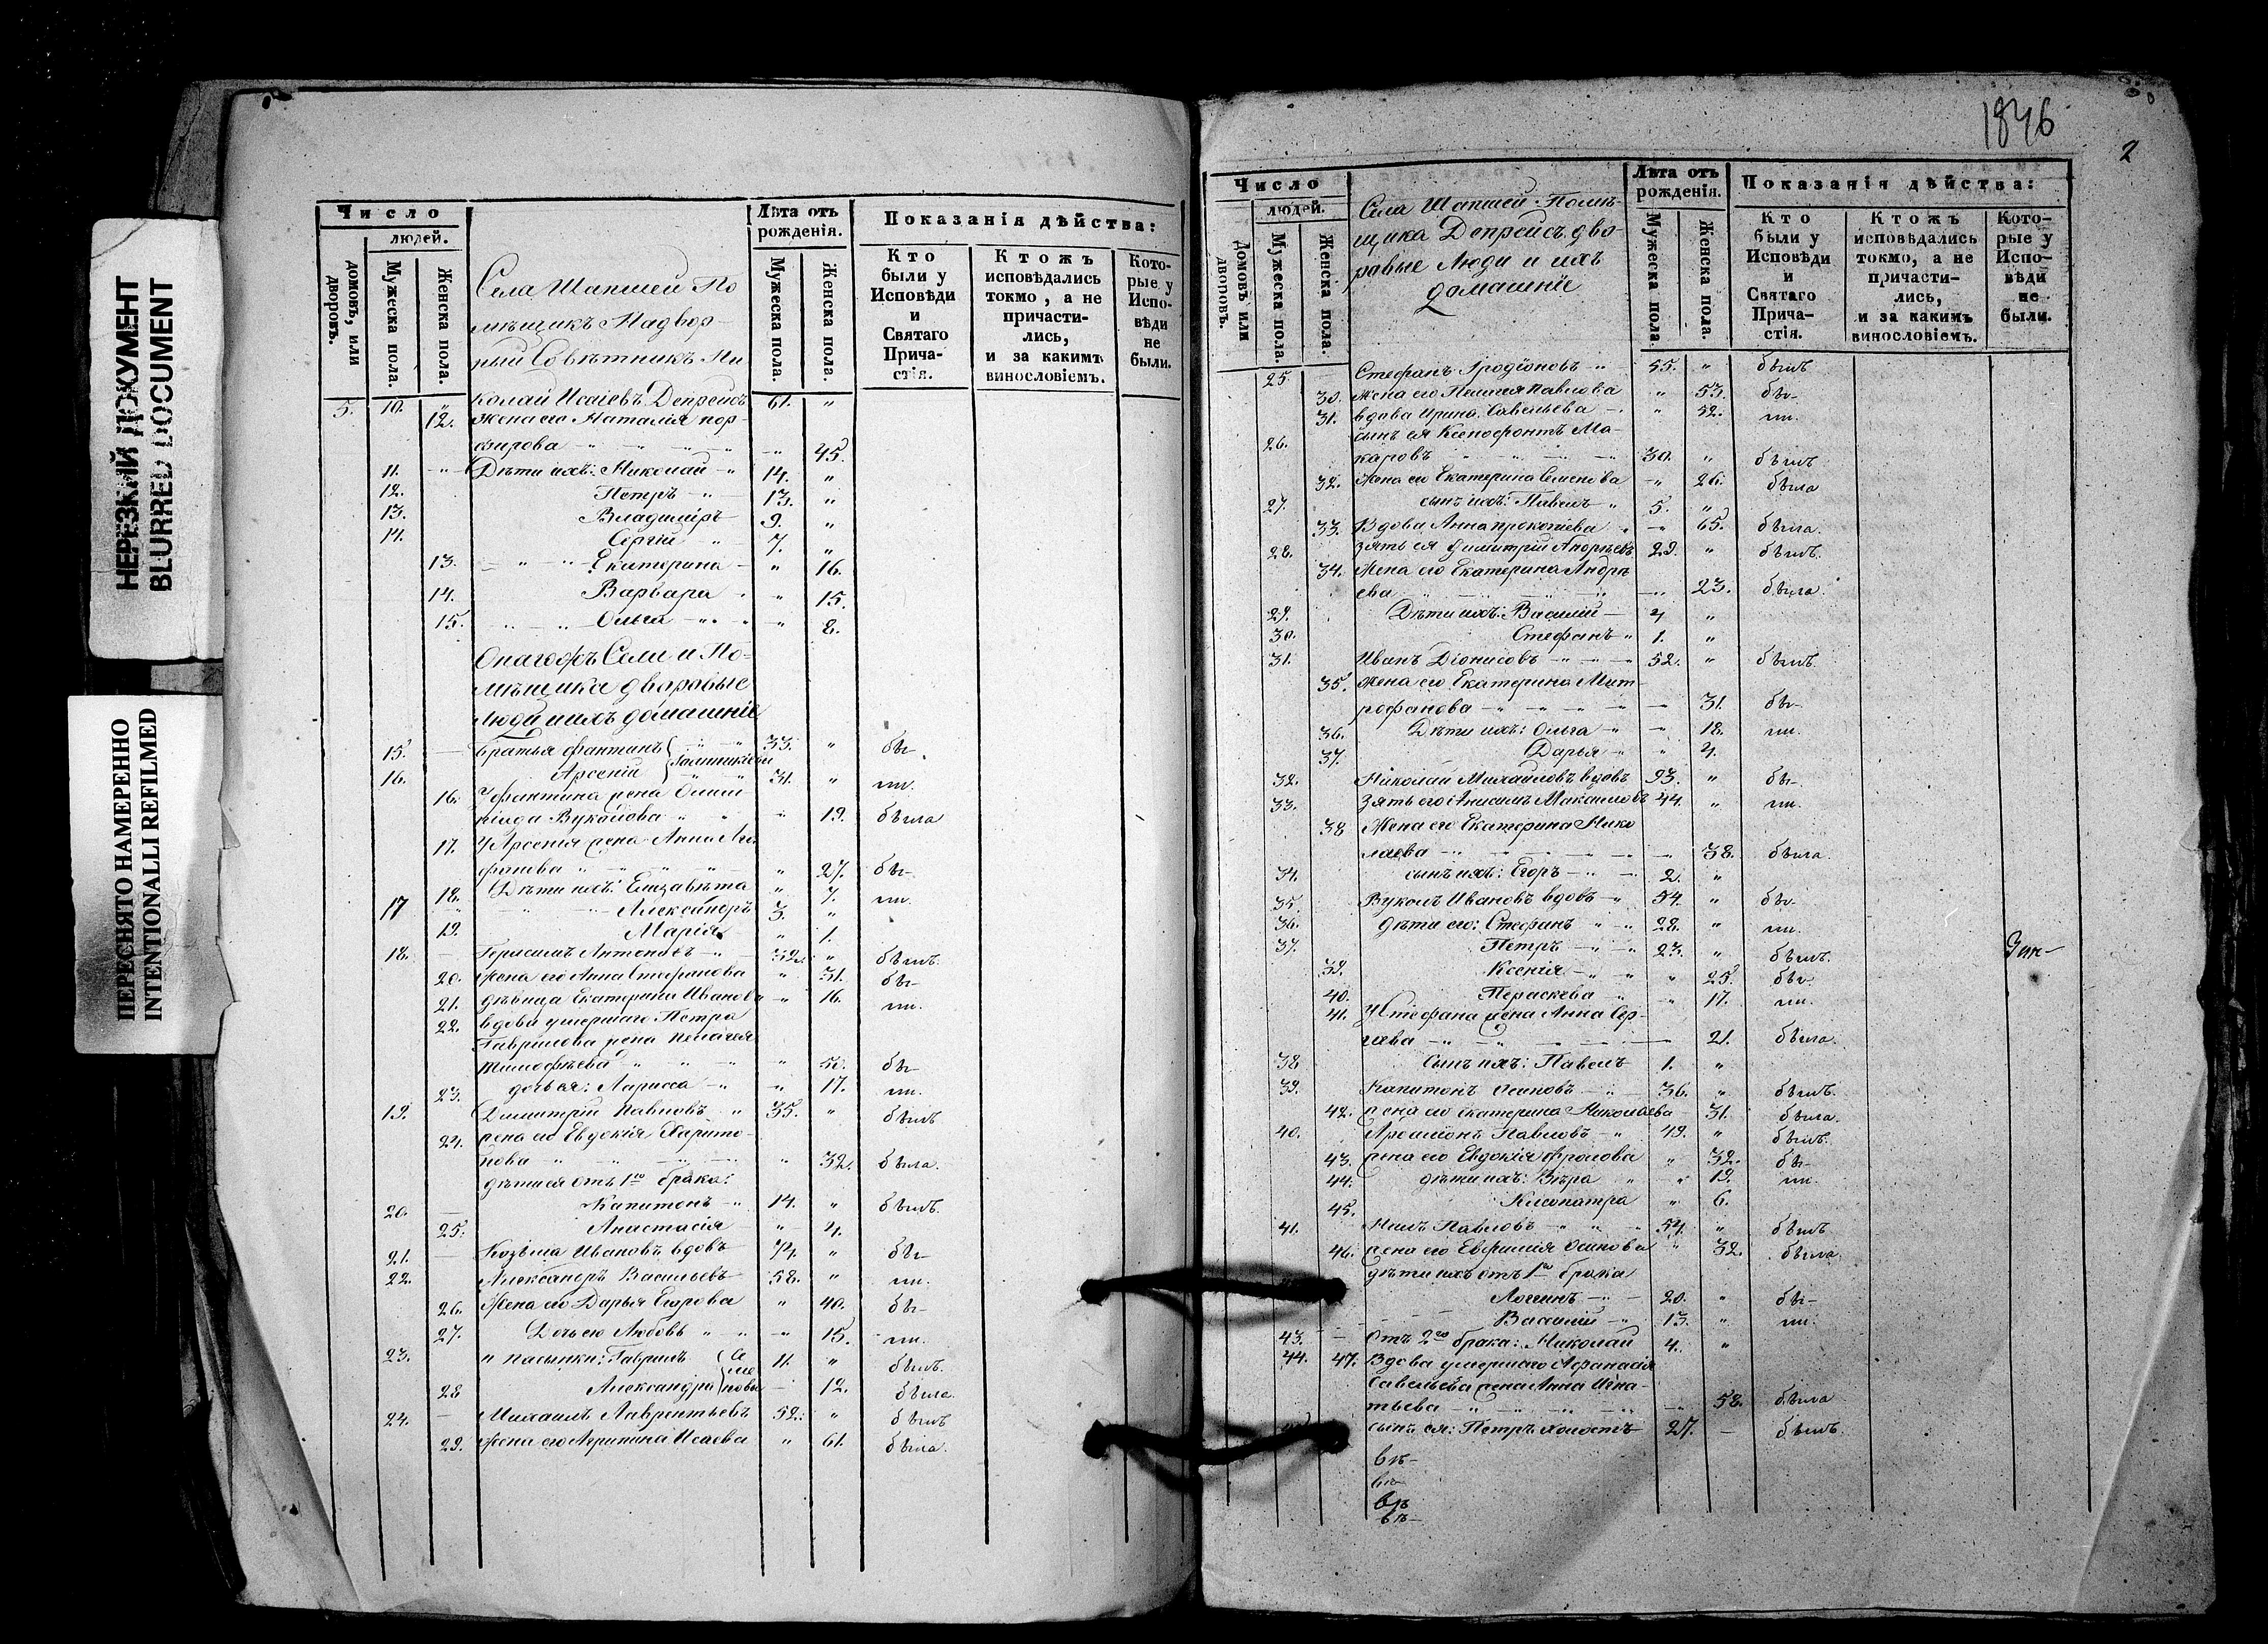 НЕРЕЗКИЙ ДОКУМЕНТ
BLURRED DOCUMENT
ПЕРЕСНЯТО НАМЕРЕННО
INTENTIONALLI REFILMED
Число
людей.
домовъ, или дворовъ.
Мужеска пола.
Женска пола.
Села Шапшей По
мѣщикъ Надвор-
ный Совѣтникъ Ни
колай Исаіевъ Депрейсъ
Лѣта отъ рожденія.
Мужеска пола.
Женска пола.
Показанія дѣйства:
Кто были у Исповѣди и Святаго Прича-стія.
Ктожъ исповѣдались токмо, а не причасти-лись, и за какимъ винословіемъ.
Кото-рые у Испо-вѣди не были.
5. 10. " 61. "
12. Жена его Наталія пор-
фирова 45.
11. Дѣти ихъ: Николай 14. "
12. Петръ 13. "
13. Владиміръ 9. "
14. Сергій 7. "
13. Екатерина " 16.
14. Варвара " 15.
15. Ольга " 8.
Онагожъ Села и По-
мѣщика дворовые
люди и ихъ домашніе
15. Братья Фантинъ 33. " бы-
16. Арсеній 31. " ли.
16. У Фантина жена
Вуколова " 19. была
17. У Арсенія жена Анна
" 27. бы-
18. Дѣти ихъ: Елизавѣта " 7. ли.
17 Александръ 3. "
19. Марія " 1.
18. Герасимъ Антоновъ 32. " былъ.
20. Жена его Анна Стефанова " 31. бы-
21. дѣвица Екатерина Иванова " 16. ли.
22. вдова умершаго Петра
Гаврилова жена Пелагея
Тимофѣева " 50. бы-
23. дочь ея: Ларисса " 17. ли.
19. Димитрій Павловъ 35. " былъ
24. жена его Евдокія Харито-
нова " 32. была.
дѣти ея отъ 1го брака:
20. Капитонъ 14. " былъ.
25. Анастасія 4.
21. Козьма Ивановъ вдовъ 74. " бы-
22. Александръ Васильевъ 58. " ли.
26. Жена его Дарья Егорова " 40. бы-
27. Дочь ею Любовь " 15. ли.
23. пасынки: Гаврилъ 11. " былъ.
28 Александра 12. была.
24. Михаилъ Лаврентьевъ 52. " былъ
29. Жена его Агрипина Исаева " 61. была.
1846
2
Число
людей.
Домовъ или дворовъ.
Мужеска пола.
Женска пола.
Села Шапшей Помѣ-
щика Депрейсъ дво-
ровые Люди и ихъ
домашніе
Лѣта отъ рожденія.
Мужеска пола.
Женска пола.
Показанія дѣйства:
Кто были у Исповѣди и Святаго Прича-стія.
Ктожъ исповѣдались токмо, а не причасти-лись, и за какимъ винословіемъ.
Кото-рые у Испо-вѣди не были.
25. Стефанъ Иродіоновъ 55. " былъ
30. Жена его Пелагея Павлова " 53. бы-
31. вдова Ирина Савельева " 52. ли.
26. сынъ ея Ксенофонтъ Ма-
каровъ 30. " былъ
32. Жена его Екатерина Семенова " 26. была
27. сынъ ихъ: Павелъ 5. "
33. Вдова Анна Прокопіева 65. была.
28. зять ея Димитрій Андреевъ 29. " былъ.
34. Жена его Екатерина Андре
ева 23. была.
29. Дѣти ихъ: Василій 4 "
30. Стефанъ 1. "
31. Иванъ Діонисовъ 52. " былъ.
35. Жена его Екатерина Мит-
рофанова 31. бы-
36. Дѣти ихъ: Ольга " 18. ли.
37. Дарья " 4.
32. Николай Михайловъ вдовъ 93. " бы-
33. Зять его Анисимъ Максимовъ 44. " ли.
38 Жена его Екатерина Нико
лаева 38. была.
34. сынъ ихъ: Егоръ 2. "
35. Вуколъ Ивановъ вдовъ 54. " бы-
36. дѣти его: Стефанъ 28. " ли.
37. Петръ 23. " былъ.
39. Ксенія " 25. бы-
40. Параскева " 17. ли.
41. У Стефана жена Анна Сер-
гіева 21. была.
38 Сынъ ихъ: Павелъ 1. "
39. Капитонъ Осиповъ 36. " былъ.
42. жена его Екатерина Николаева 31. была.
40. Ардаліонъ Павловъ 49. " былъ.
43. жена его Евдокія Фролова " 32. бы-
44. дѣти ихъ: Вѣра " 12. ли.
45. Клеопатра " 6.
41. Нилъ Павловъ 54. " былъ
46. жена его Евфимія Осипова " 32. была.
дѣти ихъ отъ 1го брака
Логгинъ 20. " бы-
Василій 13. " ли.
43. Отъ 2го брака: Николай 4. "
44. 47. Вдова умершаго Афанасія
Савельева жена Анна Игна-
тьева 58. была
сынъ ея: Петръ холостъ 27. былъ.